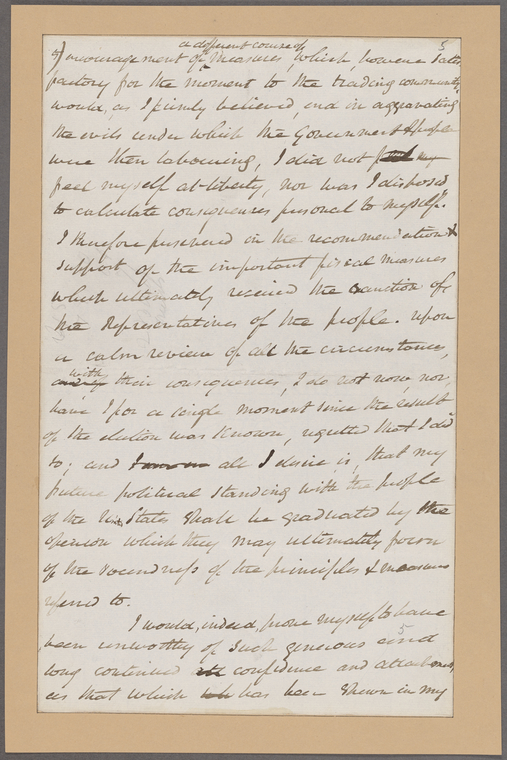 a different course of
5
encouragement of Measures, which however satis
factory for the moment to the trading community
would, as I firmly believed, end in aggravating
the evils under which the Government & people
were then labouring, I did not
feel myself at liberty, nor was I disposed
to calculate consequences personal to myself.
I therefore persevered in the recommendation &
support of the important fiscal measures
which ultimately received the Sanction of
the Representatives of the people. Upon
a calm review of all the circumstances,
with
their consequences, I do not now, nor,
have I for a single moment since the result
of the election was Known, regretted that I did
so; and all I desire is, that my
future political standing with the people
of the Uni States shall be graduated by the
opinion which they may ultimately form
of the soundness of the principles & measures
referred to.
I would, indeed, prove myself to have
been unworthy of such generous and
5
long continued confidence and attachment,
as that which has been shewn in my